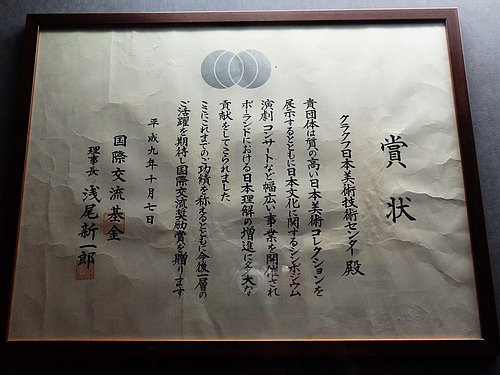 賞状
クラクフ日本美術技術センター殿
貴団体は質の高い日本美術コレクションを
展示するとともに日本文化に関するシンポジウム
演劇コンサートなど幅広い事業を開催され
ポーランドにおける日本理解の増進に多大な
貢献をしてこられました
ここにこれまでのご功績を称えるとともに今後一層の
ご活躍を期待し国際交流奨励賞を贈ります
平成九年十月七日
国際交流基金
理事長 浅尾新一郎